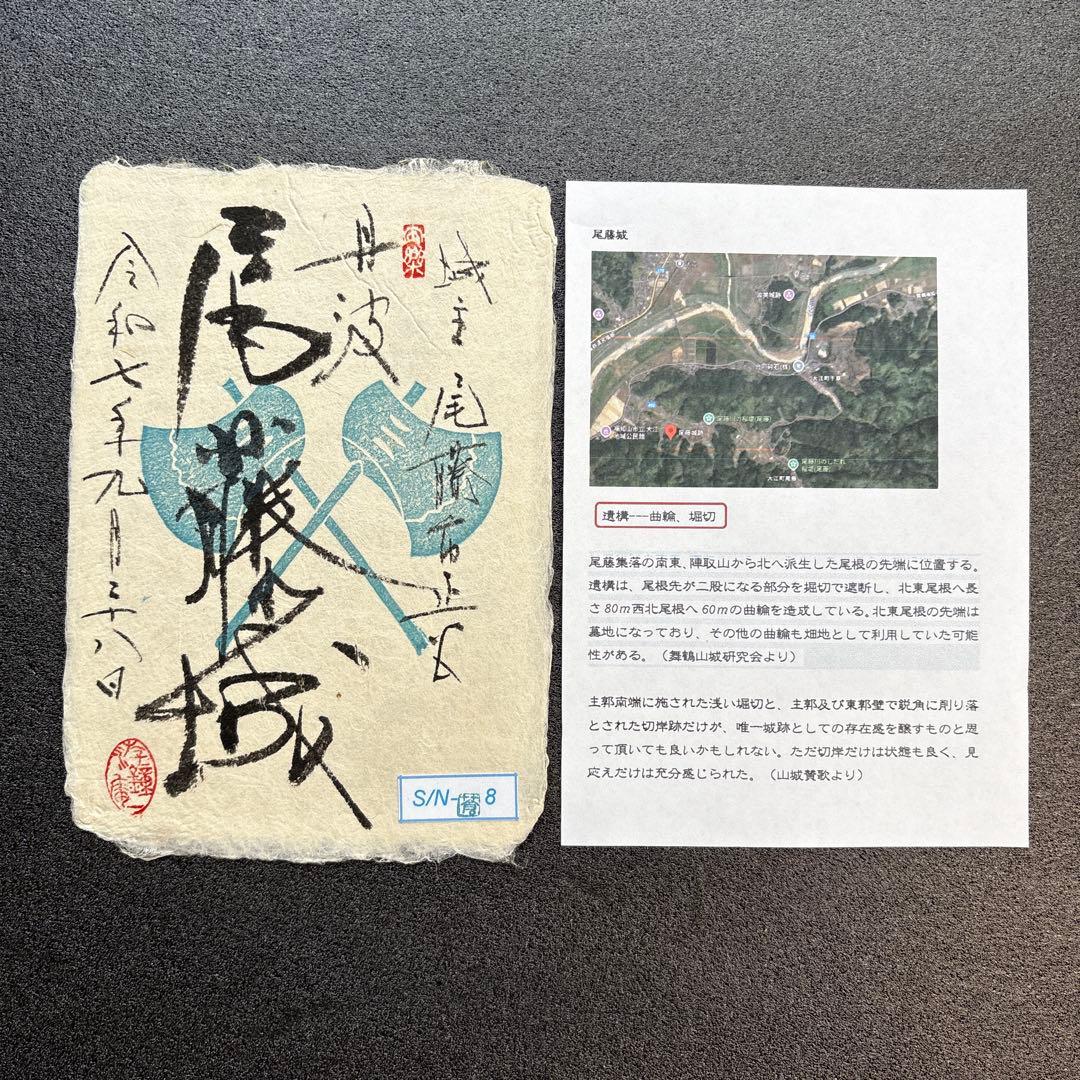 城主 尾藤
丹波
尾藤城
令和七年九月二十八日
S/N- 8
尾藤城
尾藤城跡
大江町尾藤
遺構---曲輪、堀切
尾藤集落の南東、陣取山から北へ派生した尾根の先端に位置する。
遺構は、尾根先が二股になる部分を堀切で遮断し、北東尾根へ長
さ80m西北尾根へ60mの曲輪を造成している。北東尾根の先端は
墓地になっており、その他の曲輪も畑地として利用していた可能
性がある。（舞鶴山城研究会より）
主郭南端に施された浅い堀切と、主郭及び東郭壁で鋭角に削り落
とされた切岸跡だけが、唯一城跡としての存在感を醸すものと思
って頂いても良いかもしれない。ただ切岸だけは状態も良く、見
応えだけは充分感じられた。（山城賛歌より）